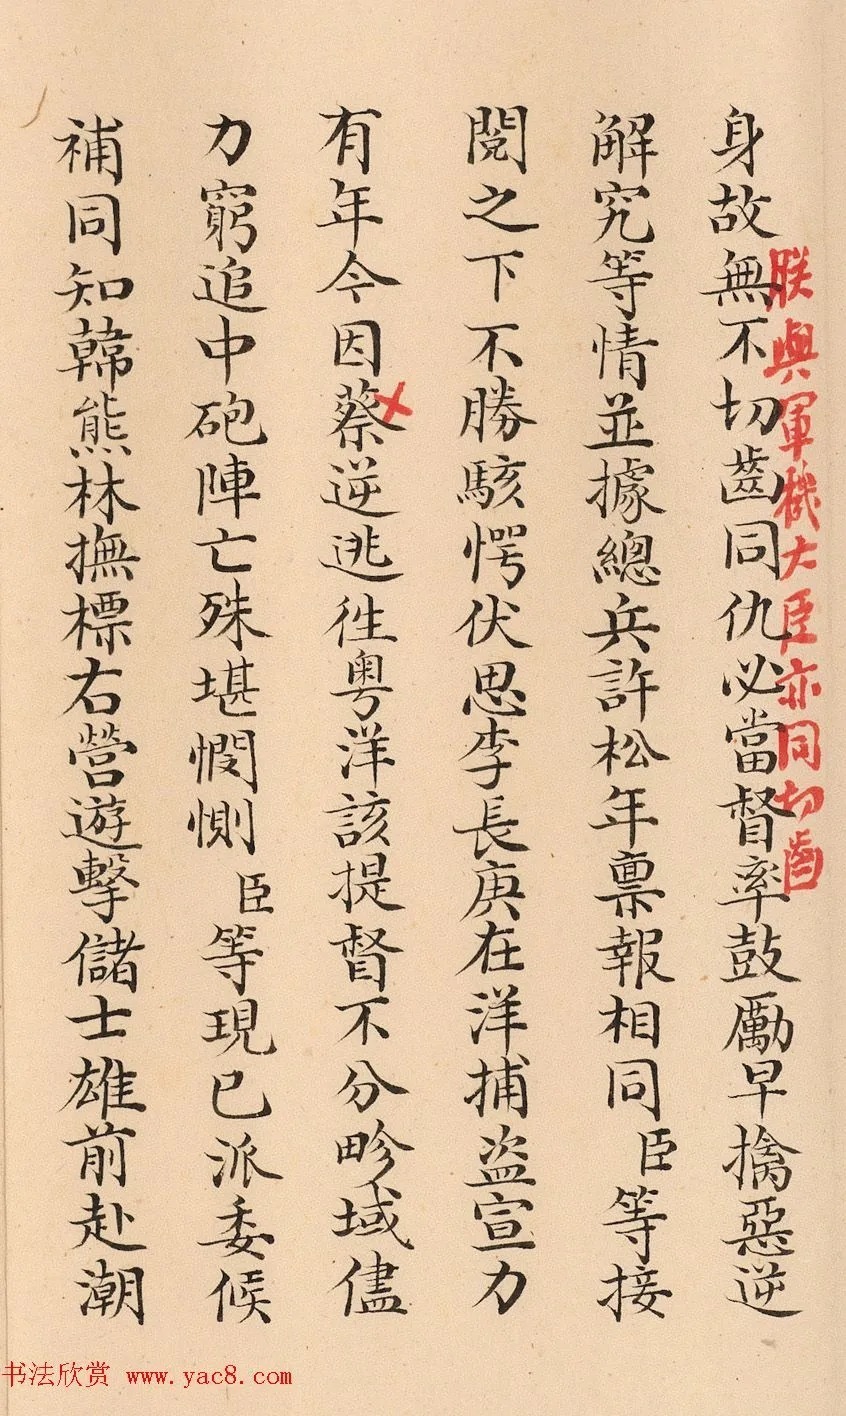 身故無不切齒同仇必當督率鼓勵早擒惡逆
朕與軍機大臣亦同切齒
解究等情並據總兵許松年稟報相同臣等接
閱之下不勝駭愕伏思李長庚在洋捕盜宣力
有年今因蔡逆逃往粵洋該提督不分畛域儘
力窮追中砲陣亡殊堪憫惻臣等現已派委候
補同知韓熊林撫標右營遊擊儲士雄前赴潮
书法欣赏 www.yac8.com